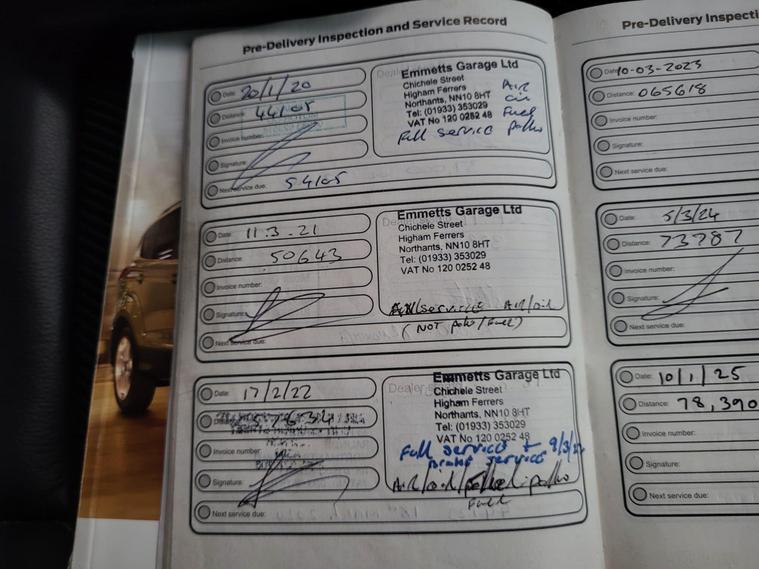 Pre-Delivery Inspection and Service Record
Date: 20/1/20
Distance:
Invoice number:
Signature:
Next service due: 54105
Emmetts Garage Ltd
Chichele Street
Higham Ferrers
Northants, NN10 8HT
Tel: (01933) 353029
VAT No 120 0252 48
Air
Fuel
Full service
Date: 11.3.21
Distance: 50643
Invoice number:
Signature:
Next service due:
Emmetts Garage Ltd
Chichele Street
Higham Ferrers
Northants, NN10 8HT
Tel: (01933) 353029
VAT No 120 0252 48
service Air/oil
(NOT Fuel)
Date: 17/2/22
Invoice number:
Signature:
Next service due:
Emmetts Garage Ltd
Chichele Street
Higham Ferrers
Northants, NN10 8HT
Tel: (01933) 353029
VAT No 120 0252 48
Full service +
Brake service
Air/oil/
Fuel
Pre-Delivery Inspecti
Date: 10-03-2023
Distance: 065618
Invoice number:
Signature:
Next service due:
Date: 5/3/24
Distance: 73787
Invoice number:
Signature:
Next service due:
Date: 10/1/25
Distance: 78,390
Invoice number:
Signature:
Next service due: